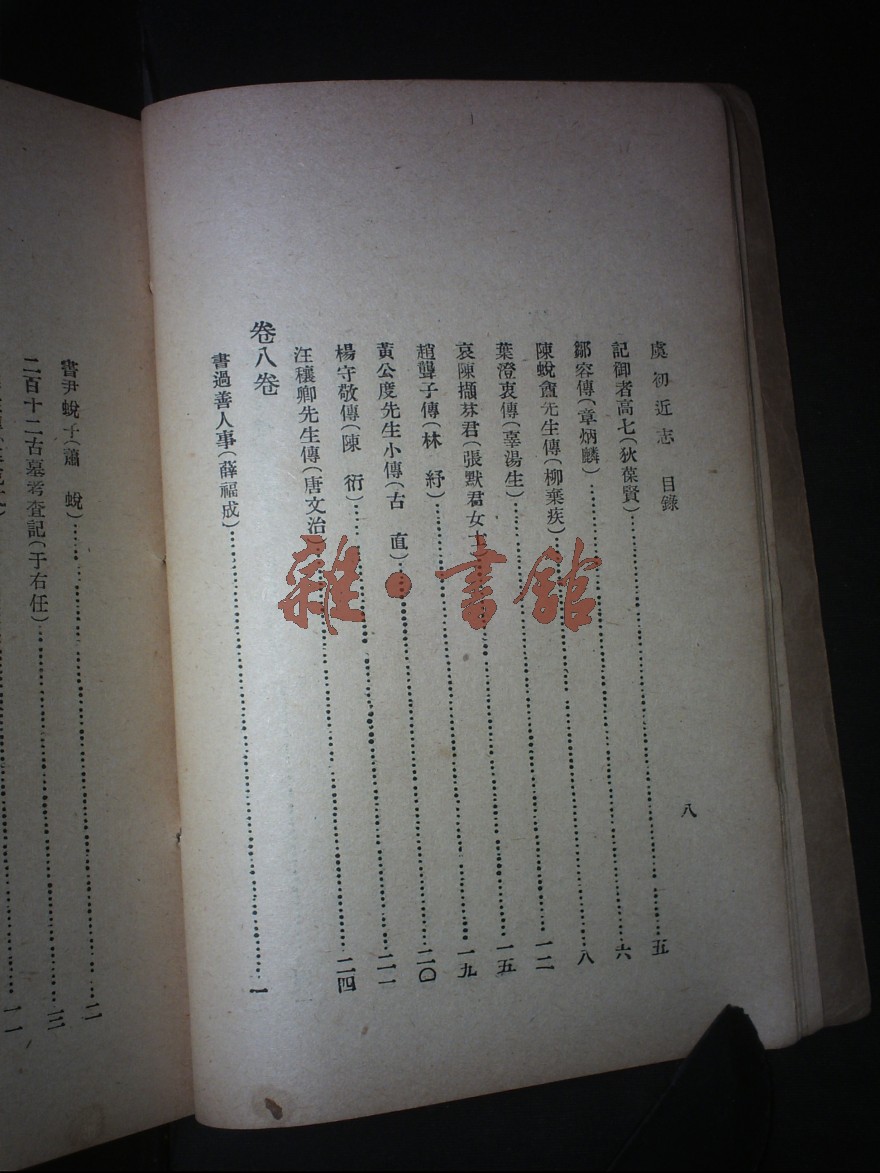 虞初近志 目錄 八
記御者高七(狄葆賢)……五
鄒容傳(章炳麟)……六
陳蛻盦先生傳(柳棄疾)……八
葉澄衷傳(辜湯生)……一二
哀陳擷芬君(張默君女士……一五
趙聾子傳(林 紓)……一九
黃公度先生小傳(古 直)……二〇
楊守敬傳(陳 衍)……二一
汪穰卿先生傳(唐文治)……二四
卷八卷
書過善人事(薛福成)……一
書尹蛻子(蕭 蛻)……二
二百十二古墓考查記(于右任)……三
雜·書館